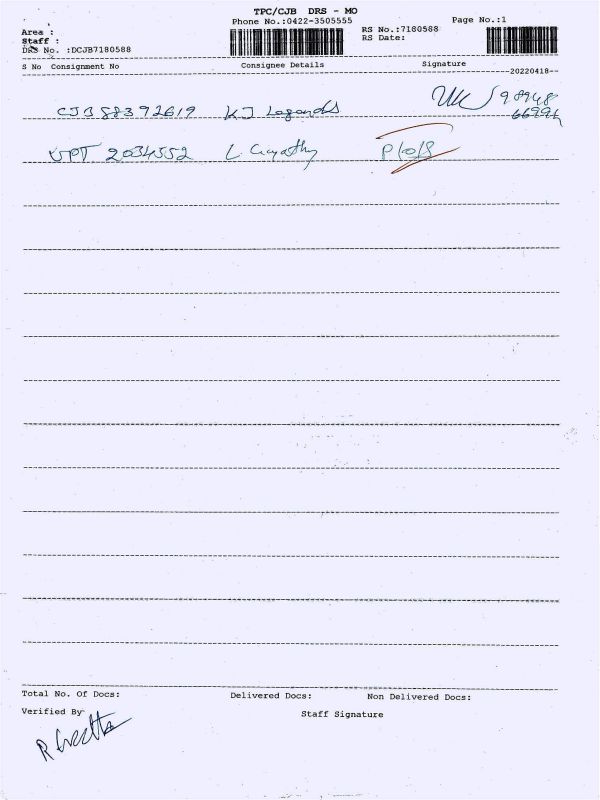 TPC/CJB DRS - MO
Phone No.:0422-3505555 Page No.:1
Area :
Staff :
RS No.:7180588
RS Date:
DRS No. :DCJB7180588
S No Consignment No Consignee Details Signature
--20220418--
CJB 88392619 KJ 98948
66994
VPT 2034552 L Gayathry
Total No. Of Docs: Delivered Docs: Non Delivered Docs:
Verified By Staff Signature
R